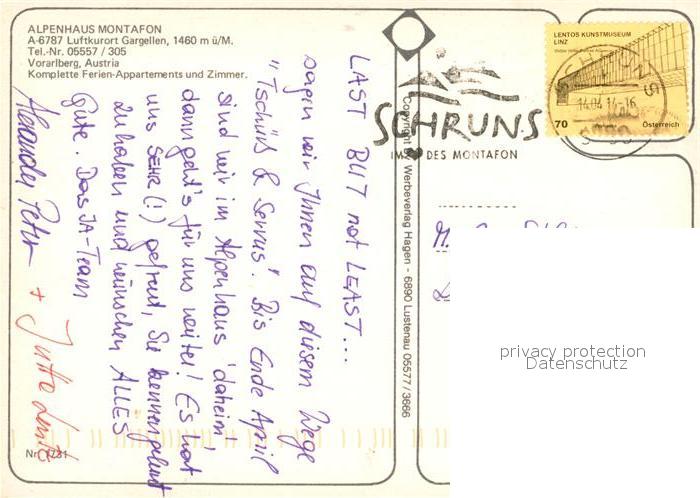 ALPENHAUS MONTAFON
A-6787 Luftkurort Gargellen, 1460 m ü/M.
Tel.-Nr. 05557 / 305
Vorarlberg, Austria
Komplette Ferien-Appartements und Zimmer.
LAST BUT not LEAST...
sagen wir Ihnen auf diesem Wege
"Tschüß & Servus". Bis Ende April
sind wir im Alpenhaus 'daheim',
dann geht's für uns weiter! Es hat
uns SEHR (!) gefreut, Sie kennengelernt
zu haben und wünschen ALLES
Gute. Das JA-Team
Alexander Peter + Jutta
Nr. 1731
Copyright by Werbeverlag Hagen - 6890 Lustenau 05577/3666
SCHRUNS
IM DES MONTAFON
LENTOS KUNSTMUSEUM
LINZ
70 Österreich
SCHRUNS
14.04 14-16
M.
privacy protection
Datenschutz